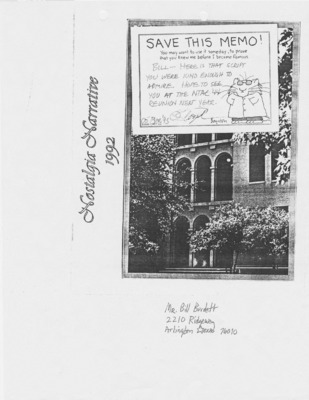 Nostalgia Narrative
1992
SAVE THIS MEMO!
You may want to use it someday, to prove
that you knew me before I became famous.
BILL — HERE IS THAT SCRIPT
YOU WERE KIND ENOUGH TO
HOPE TO SEE
YOU AT THE NTAC
REUNION NEXT YEAR.
Mr. Bill
2210 Ridgeway
Arlington Texas 76010